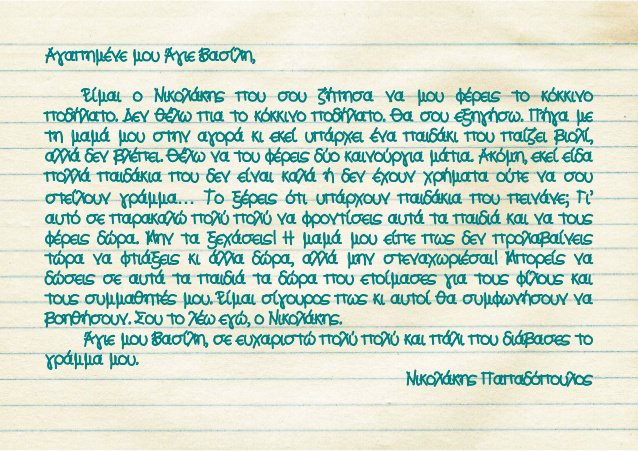 Αγαπημένε μου Άγιε Βασίλη,
Είμαι ο Νικολάκης που σου ζήτησα να μου φέρεις το κόκκινο
ποδήλατο. Δεν θέλω πια το κόκκινο ποδήλατο. Θα σου εξηγήσω. Πήγα με
τη μαμά μου στην αγορά κι εκεί υπάρχει ένα παιδάκι που παίζει βιολί,
αλλά δεν βλέπει. Θέλω να του φέρεις δύο καινούργια μάτια. Ακόμη, εκεί είδα
πολλά παιδάκια που δεν είναι καλά ή δεν έχουν χρήματα ούτε να σου
στείλουν γράμμα... Το ξέρεις ότι υπάρχουν παιδάκια που πεινάνε; Γι'
αυτό σε παρακαλώ πολύ πολύ να φροντίσεις αυτά τα παιδιά και να τους
φέρεις δώρα. Μην τα ξεχάσεις! Η μαμά μου είπε πως δεν προλαβαίνεις
τώρα να φτιάξεις κι άλλα δώρα, αλλά μην στεναχωριέσαι! Μπορείς να
δώσεις σε αυτά τα παιδιά τα δώρα που ετοίμασες για τους φίλους και
τους συμμαθητές μου. Είμαι σίγουρος πως κι αυτοί θα συμφωνήσουν να
βοηθήσουν. Σου το λέω εγώ, ο Νικολάκης.
Άγιε μου Βασίλη, σε ευχαριστώ πολύ πολύ και πάλι που διάβασες το
γράμμα μου.
Νικολάκης Παπαδόπουλος